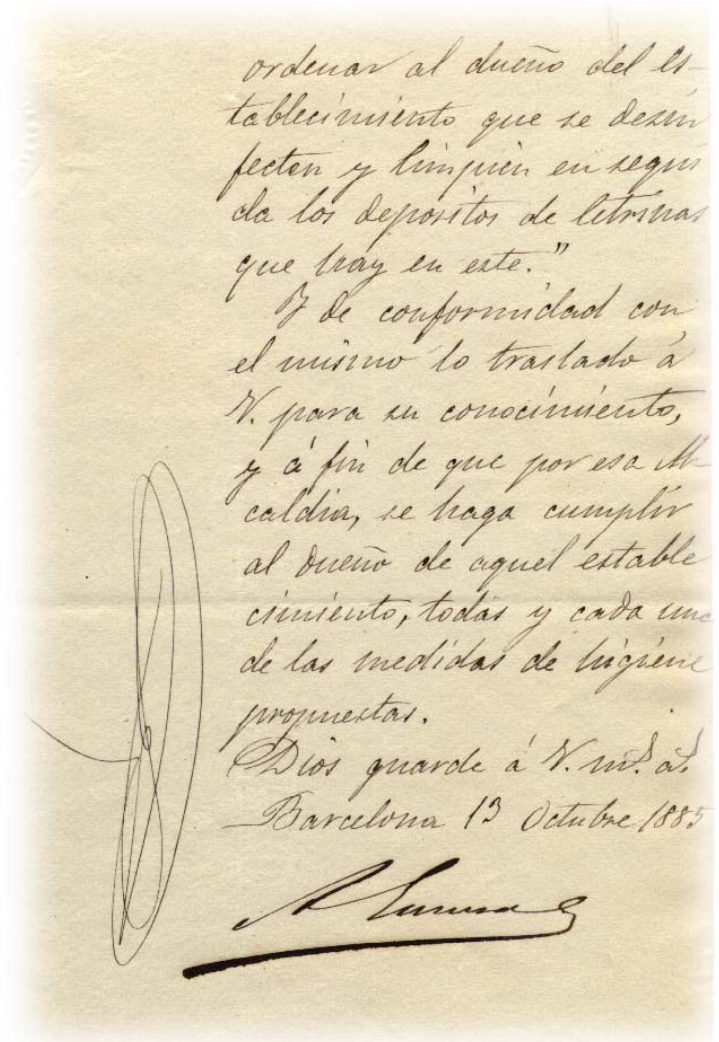 ordenar al dueño del es-
tablecimiento que se desin
fecten y limpien en segui
da los depositos de letrinas
que hay en este."
Y de conformidad con
el mismo lo traslado á
V. para su conocimiento,
y á fin de que por esa Al
caldia, se haga cumplir
al dueño de aquel estable
cimiento, todas y cada una
de las medidas de higiene
propuestas.
Dios guarde á V. mˢ. aˢ.
Barcelona 13 Octubre 1885